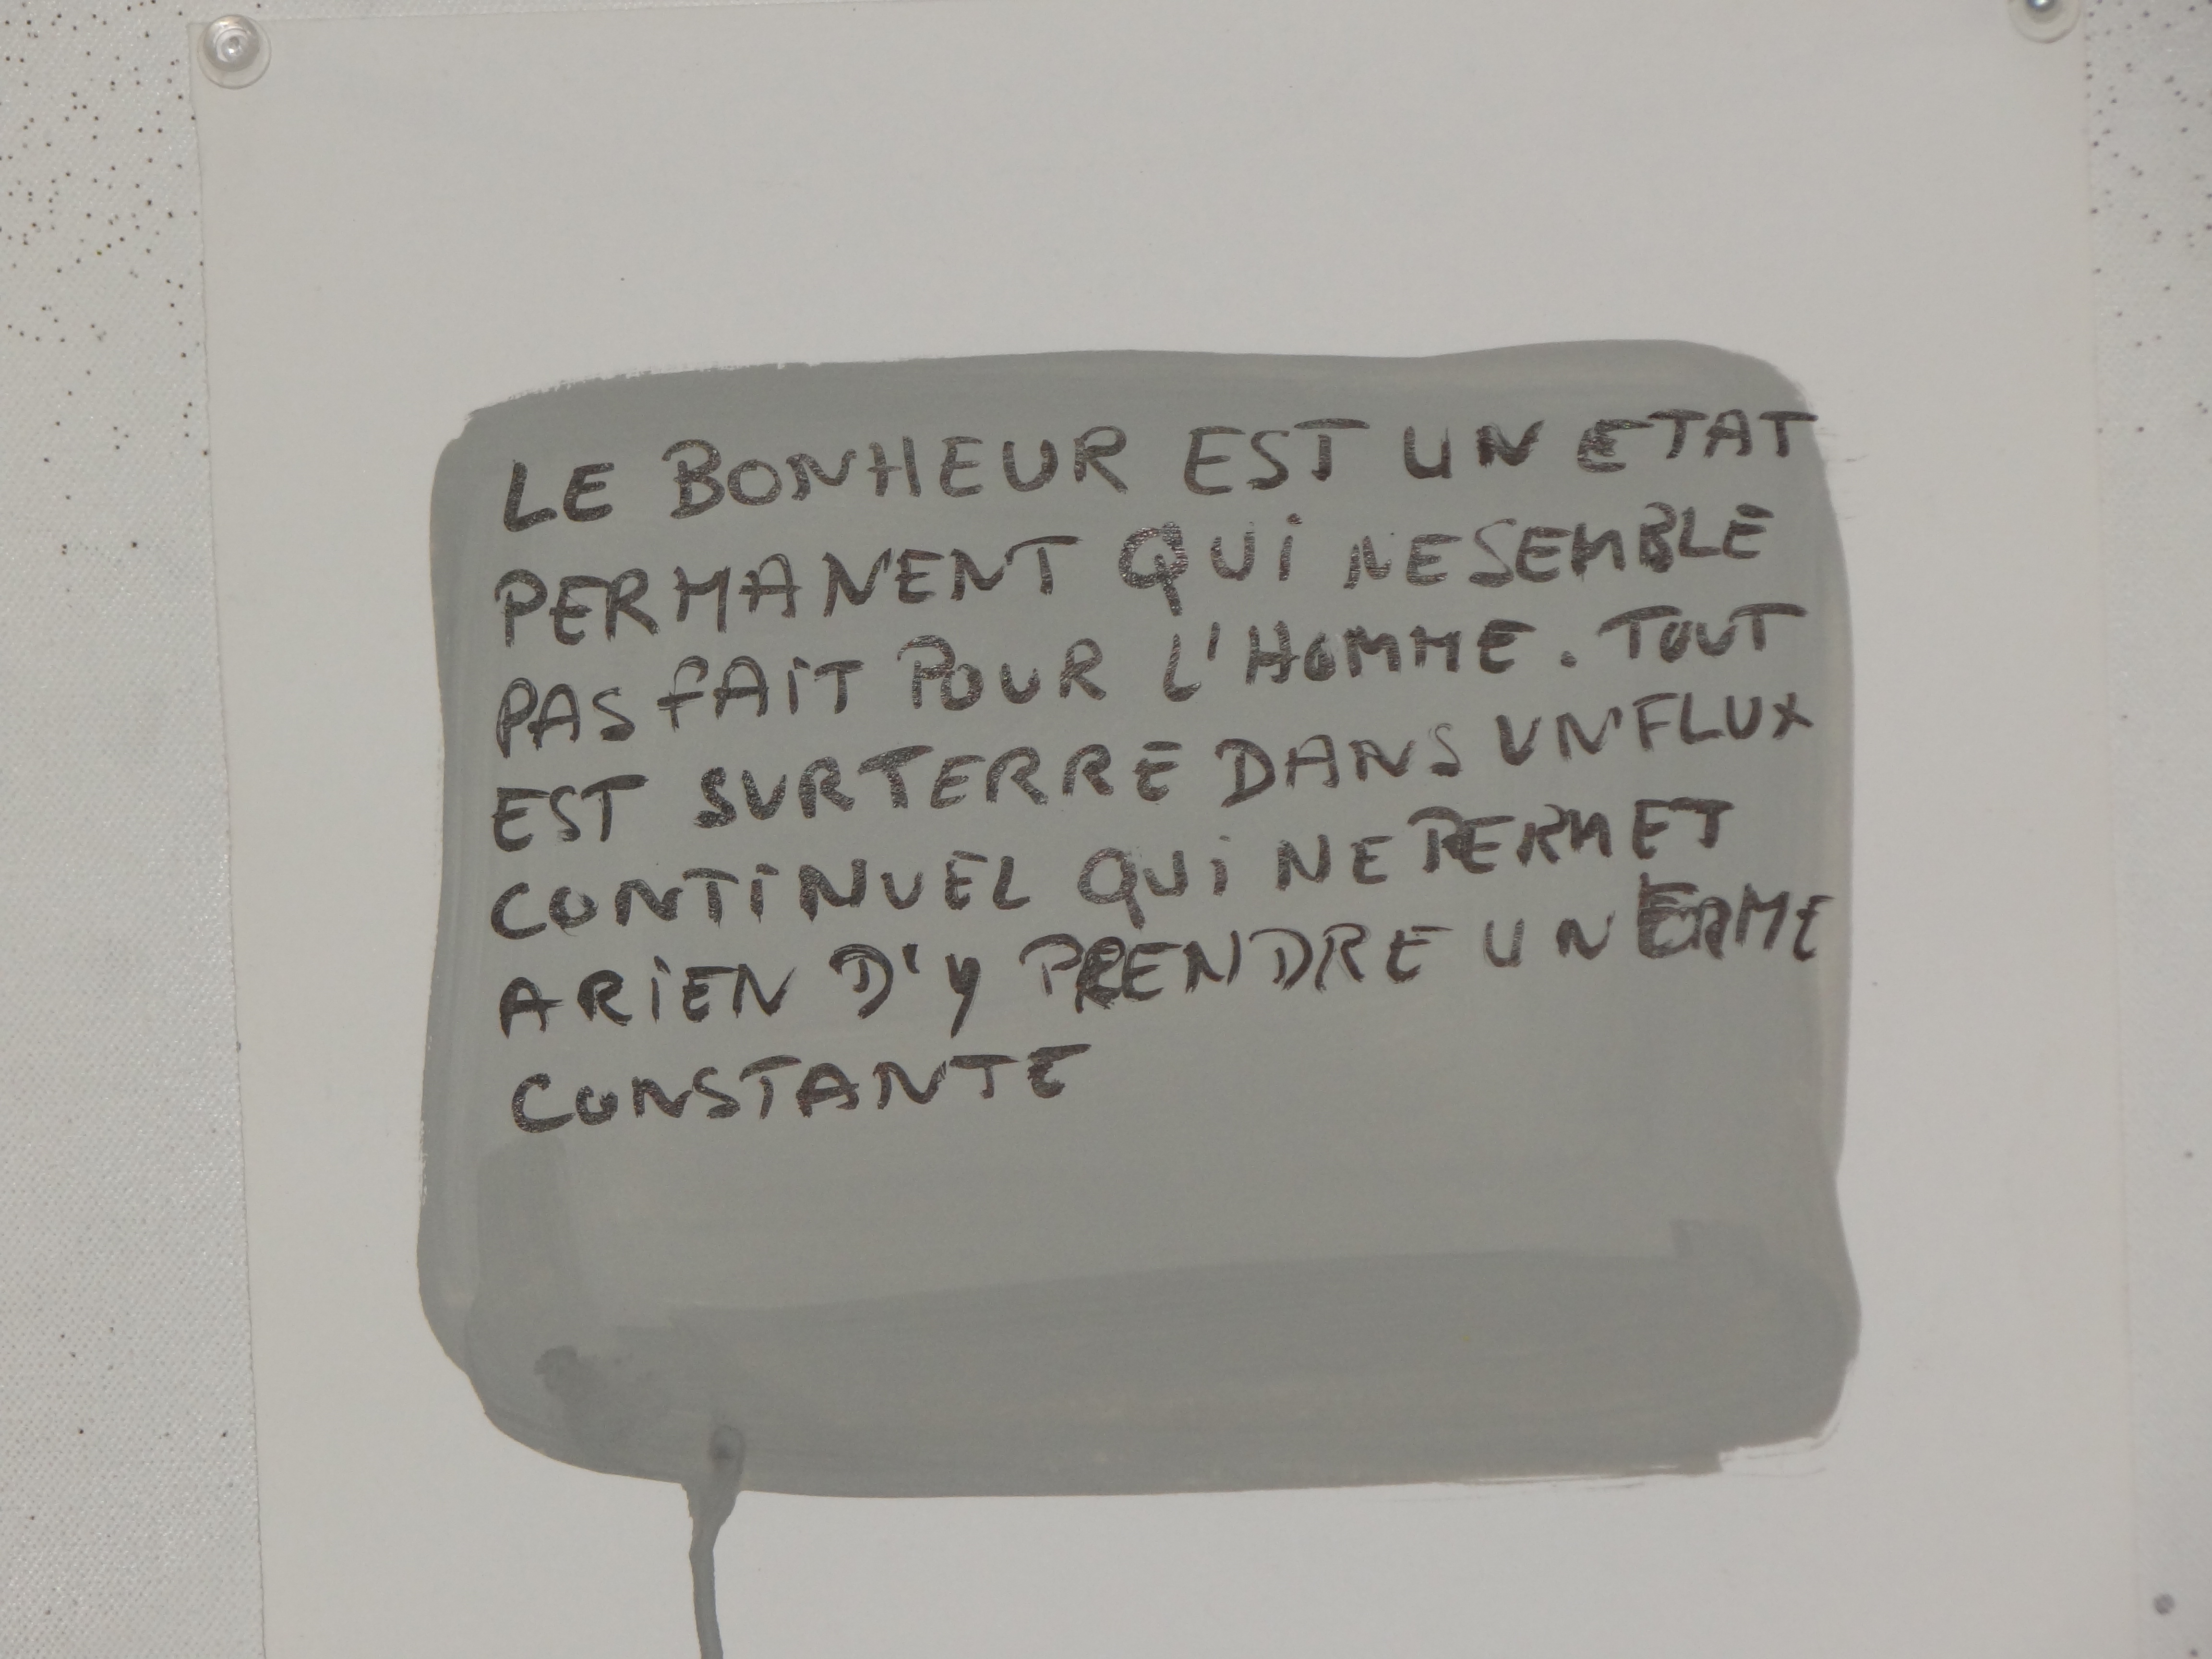 LE BONHEUR EST UN ETAT
PERMANENT QUI NE SEMBLE
PAS FAIT POUR L'HOMME. TOUT
EST SUR TERRE DANS UN FLUX
CONTINUEL QUI NE PERMET
A RIEN D'Y PRENDRE UN
CONSTANTE